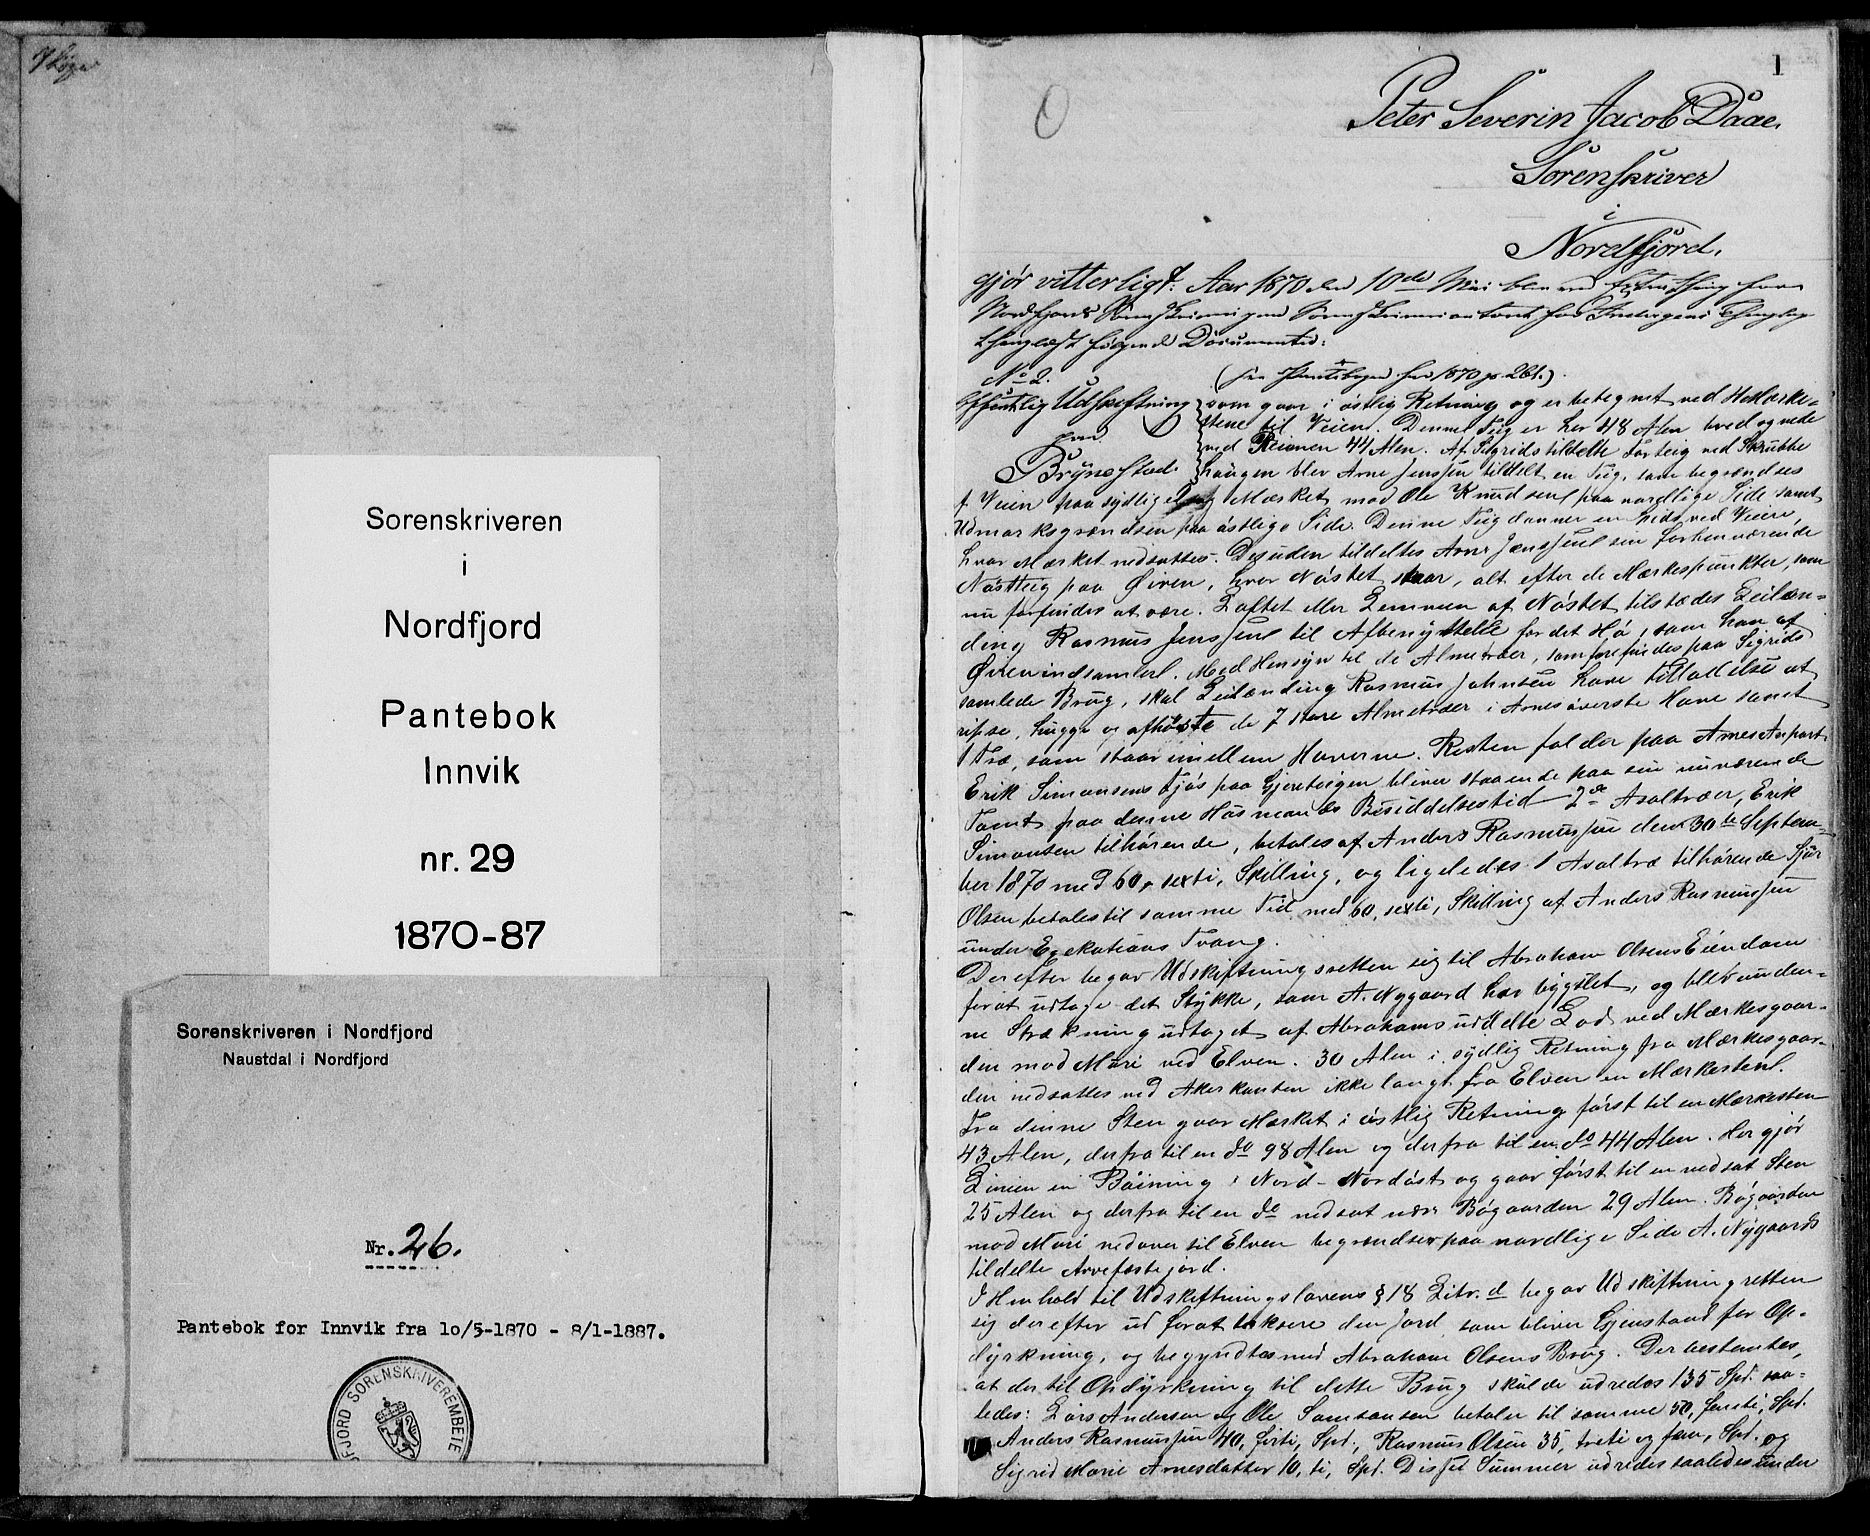 Sorenskriveren
i
Nordfjord
Pantebok
Innvik
nr. 29
1870-87
Sorenskriveren i Nordfjord
Naustdal i Nordfjord
Nr. 26.
Pantebok for Innvik fra 10/5-1870 - 8/1-1887.
FJORD SORENSKRIVEREMBETE
1
Peter Severin Jacob Daae,
Sorenskriver
i
Nordfjord.
gjør vitterligt: Aar 1870 den 10de Mai blev ved
thinglæst følgende Documenter:
No 2. (se Pantebogen for 1870 p. 261.)
Offentlig Udskiftning som gaar i østlig Retning og er betegnet ved
paa stene til Veien. Denne Teig er her 48 Alen bred og nede
Brynestad. ved 44 Alen. Af Sigrids tildelte Forteig ved Skrubbe
haugen blev Arne Jenssen tildelt en Teig, som begrændses
f Veien paa sydlige og Mærket mod Ole Knudsen paa nordlige Side samt
Udmarksgrændsen paa østlige Side. Denne Teig danner en ved Veien,
hvor Mærket nedsattes. Desuden tildeltes Arne Jenssen sin forhenværende
Nøstteig paa Øiren, hvor Nøstet staar, alt efter de Mærkespunkter, som
nu forfindes at være. Loftet eller Lemmen af Nøstet tilstædes Leilæn-
ding Rasmus Jenssen til Afbenyttelse for det Hø, som han af
Øiren indsamler. Med Hensyn til de Almetræer, som forefindes paa Sigrids
samlede Brug, skal Leilænding Rasmus Johnsen have Tilladelse at
ripse, hugge og afhøste de 7 store Almetræer i Arnes øverste Have samt
1 Træ, som staar imellem Haverne. Resten falder paa Arnes Anpart.
Erik Simonsens Fjøs paa Gjereteigen bliver staaende paa sin nuværende
Tomt paa denne Husmands Besiddelsestid 2de Asaltræer, Erik
Simonsen tilhørende, betales af Anders Rasmussen den 30te Septem-
ber 1870 med 60, sexti, Skilling, og ligeledes 1 Asaltræ tilhørende Sjur
Olsen betales til samme Tid med 60, sexti, Skilling af Anders Rasmussen
under Exekutions Tvang.
Derefter begav Udskiftningsretten sig til Abraham Olsens Eiendom
forat udtage det Stykke, som A. Nygaard har bygslet, og blev unden-
ne Strækning udtaget af Abrahams uddelte Lod ved Mærkesgaar-
den mod Mæri ved Elven. 30 Alen i sydlig Retning fra Mærkesgaar-
den nedsattes ved Akerkanten ikke langt fra Elven en Mærkesten.
Fra denne Sten gaar Mærket i østlig Retning først til en Mærkesten
43 Alen, derfra til en do 98 Alen og derfra til en do 44 Alen. Her gjør
Linien en Bøining i Nord-Nordøst og gaar først til en nedsat Sten
25 Alen og derfra til en do nedsat nær Bøgaarden 29 Alen. Bøgaarden
mod Mæri nedover til Elven begrændser paa nordlige Side A. Nygaards
tildelte Arvefæstejord.
I Henhold til Udskiftningslovens § 18 Litr. d begav Udskiftningretten
sig derefter ud forat taksere den Jord, som bliver Gjenstand for Op-
dyrkning, og begyndtes med Abraham Olsens Brug. Der bestemtes,
at der til Opdyrkning til dette Brug skulde udredes 135 Spd. saa-
ledes: Lars Andersen og Ole Samsonsen betaler til samme 50, femti, Spd.
Anders Rasmussen 40, firti, Spd., Rasmus Olsen 35, treti og fem, Spd. og
Sigrid Marie Arnesdatter 10, ti, Spd. Disse Summer udredes saaledes under